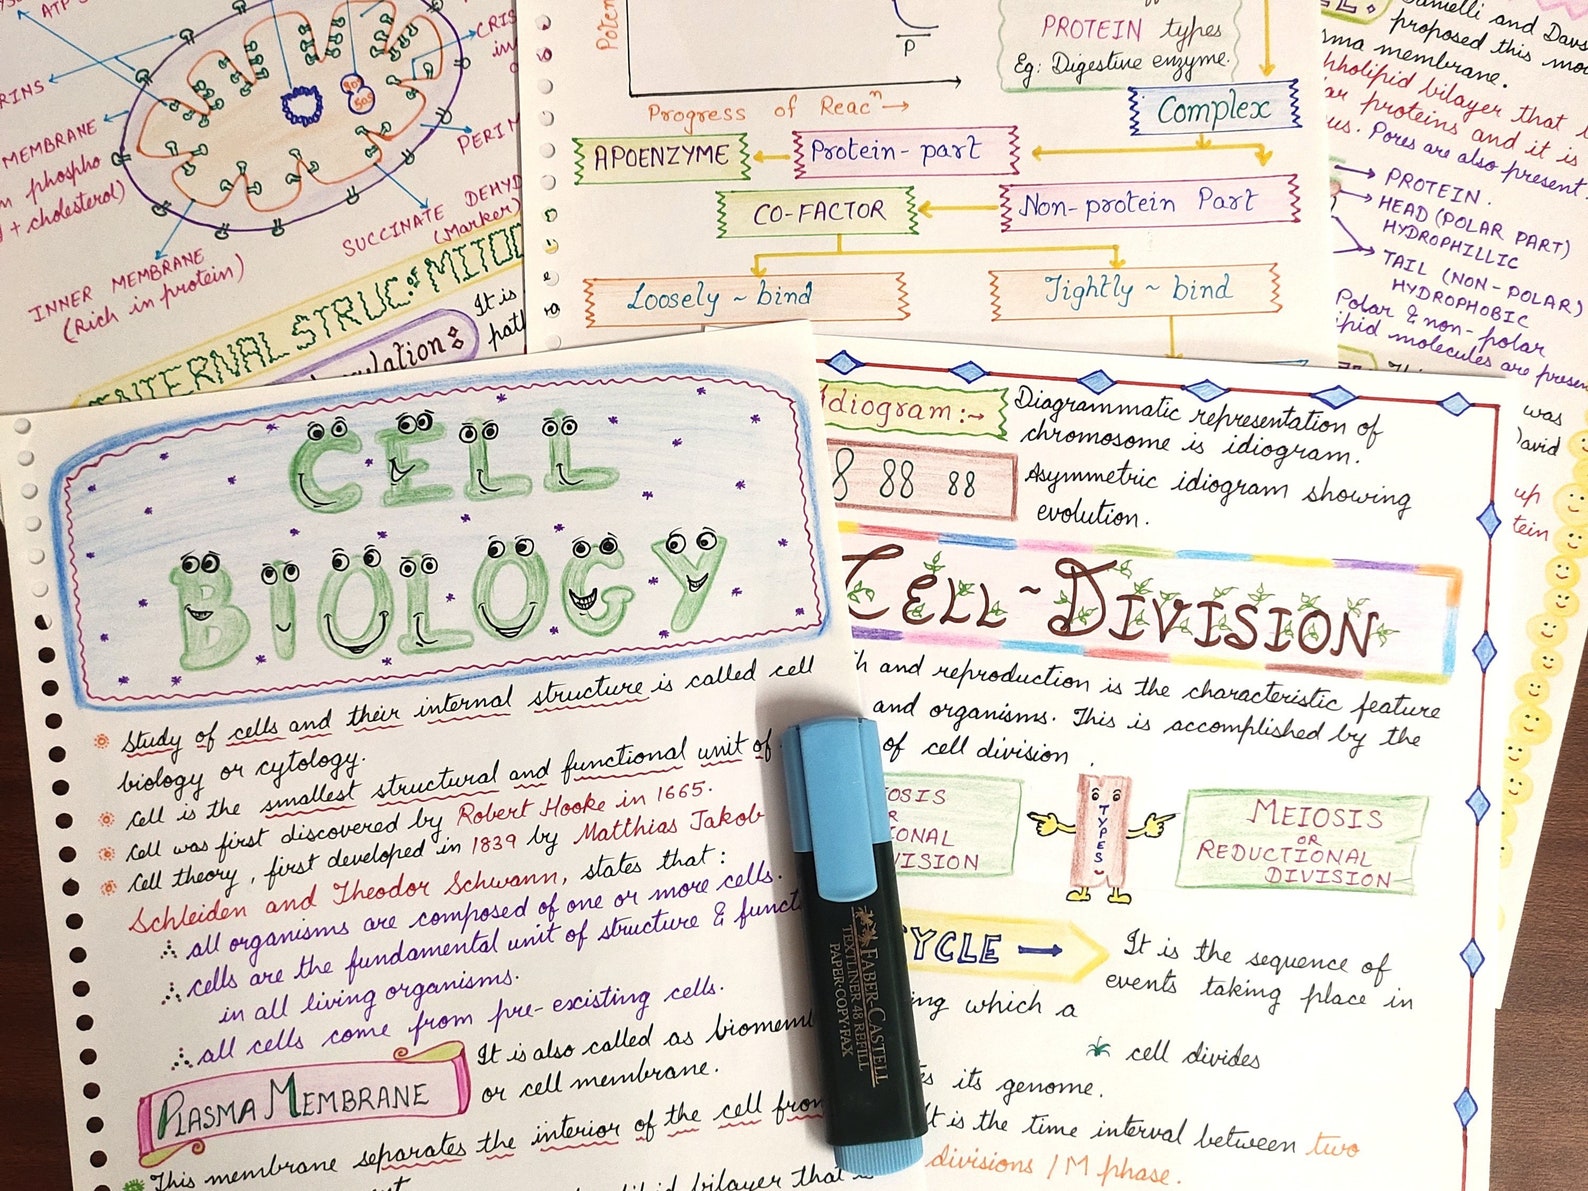 ATP
RINS
MEMBRANE
phospho
+ cholesterol)
INNER MEMBRANE
(Rich in protein)
SUCCINATE DEHYD
(Marker)
PERIM
CRIS
in
30S
50S
INTERNAL STRUC: OF MITO
It is
path
ulation:
Progress of Reacⁿ→
P
PROTEIN types
Eg: Digestive enzyme.
Complex
APOENZYME
Protein-part
CO-FACTOR
Non-protein Part
Loosely ~ bind
Tightly ~ bind
Danielli and Davs
proposed this mo
sma membrane.
pholipid bilayer that
ar proteins and it is
us. Pores are also present.
PROTEIN.
HEAD (POLAR PART)
HYDROPHILLIC
TAIL (NON-POLAR)
HYDROPHOBIC
Polar & non-polar
ipid molecules are presen
was
David
up
tein
CELL
BIOLOGY
Study of cells and their internal structure is called cell
biology or cytology.
Cell is the smallest structural and functional unit of
Cell was first discovered by Robert Hooke in 1665.
Cell theory, first developed in 1839 by Matthias Jakob
Schleiden and Theodor Schwann, states that:
all organisms are composed of one or more cells.
cells are the fundamental unit of structure & funct
in all living organisms.
all cells come from pre-existing cells.
PLASMA MEMBRANE
It is also called as biomem
or cell membrane.
This membrane separates the interior of the cell from
bilayer that
Idiogram:→
Diagrammatic representation of
chromosome is idiogram.
88 88
Asymmetric idiogram showing
evolution.
CELL~DIVISION
h and reproduction is the characteristic feature
and organisms. This is accomplished by the
of cell division.
OSIS
OR
IONAL
VISION
TYPES
MEIOSIS
OR
REDUCTIONAL
DIVISION
CYCLE →
It is the sequence of
events taking place in
ing which a
cell divides
its genome.
It is the time interval between two
divisions / M phase.
FABER-CASTELL
TEXTLINER 48 REFILL
PAPER·COPY·FAX